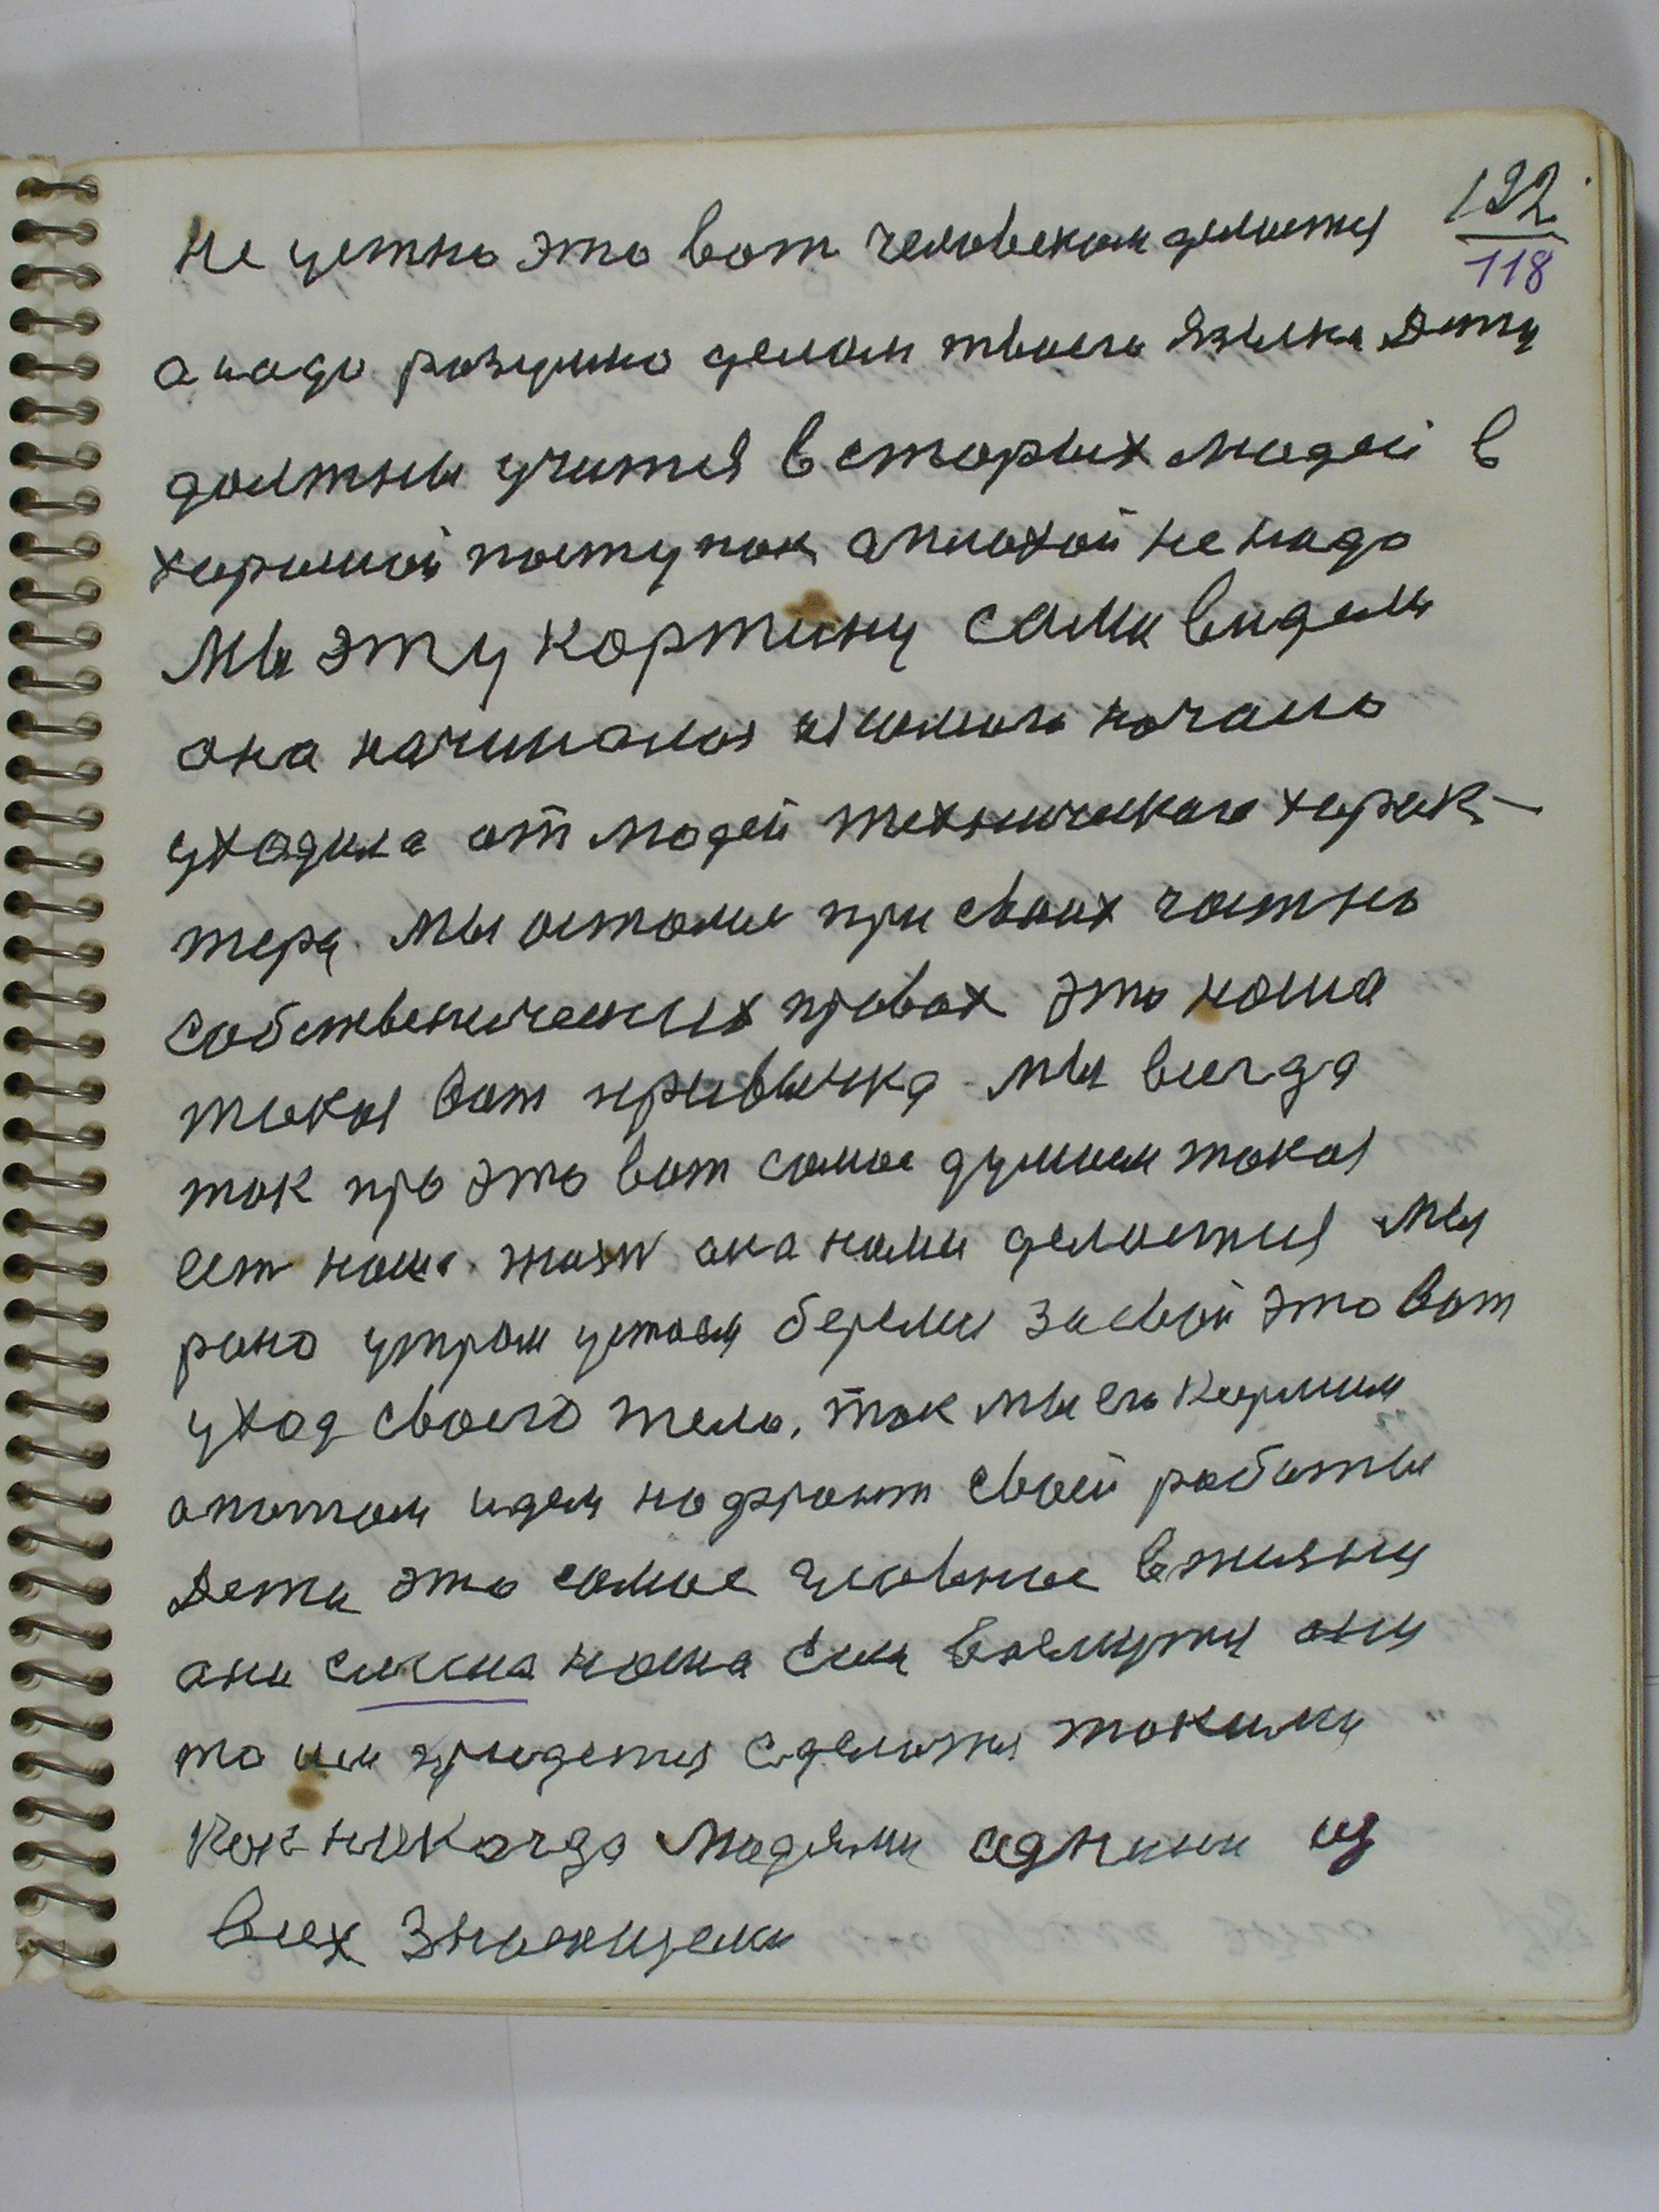 192
118
Не устно это вот человеком делается
а надо разумно делом твоего языка Дети
должны учится в старых людей в
хороший поступок а плохой не надо
Мы эту картину сами видели
она начиналася начало
уходила от людей технического харак-
тера. Мы остались при своих частно
собственических правах это наша
такая вот привычка мы всегда
так про это вот самое думаем такая
ест наша жизн она нами делается Мы
рано утром устаем беремся за свой это вот
уход своего тело, так мы его кормим
а потом идем на фронт своей работы
Дети это самое главное в жизни
они смена наша они
то им придется сделатся такими
как никогда людями одними из
всех